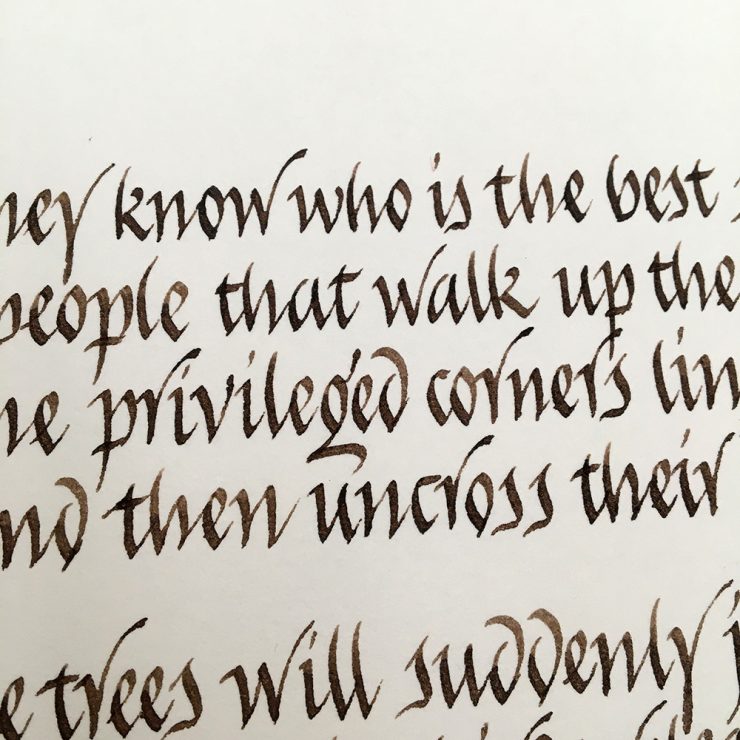 hey know who is the best
people that walk up the
ne privileged corners lin
nd then uncross their
e trees will suddenly